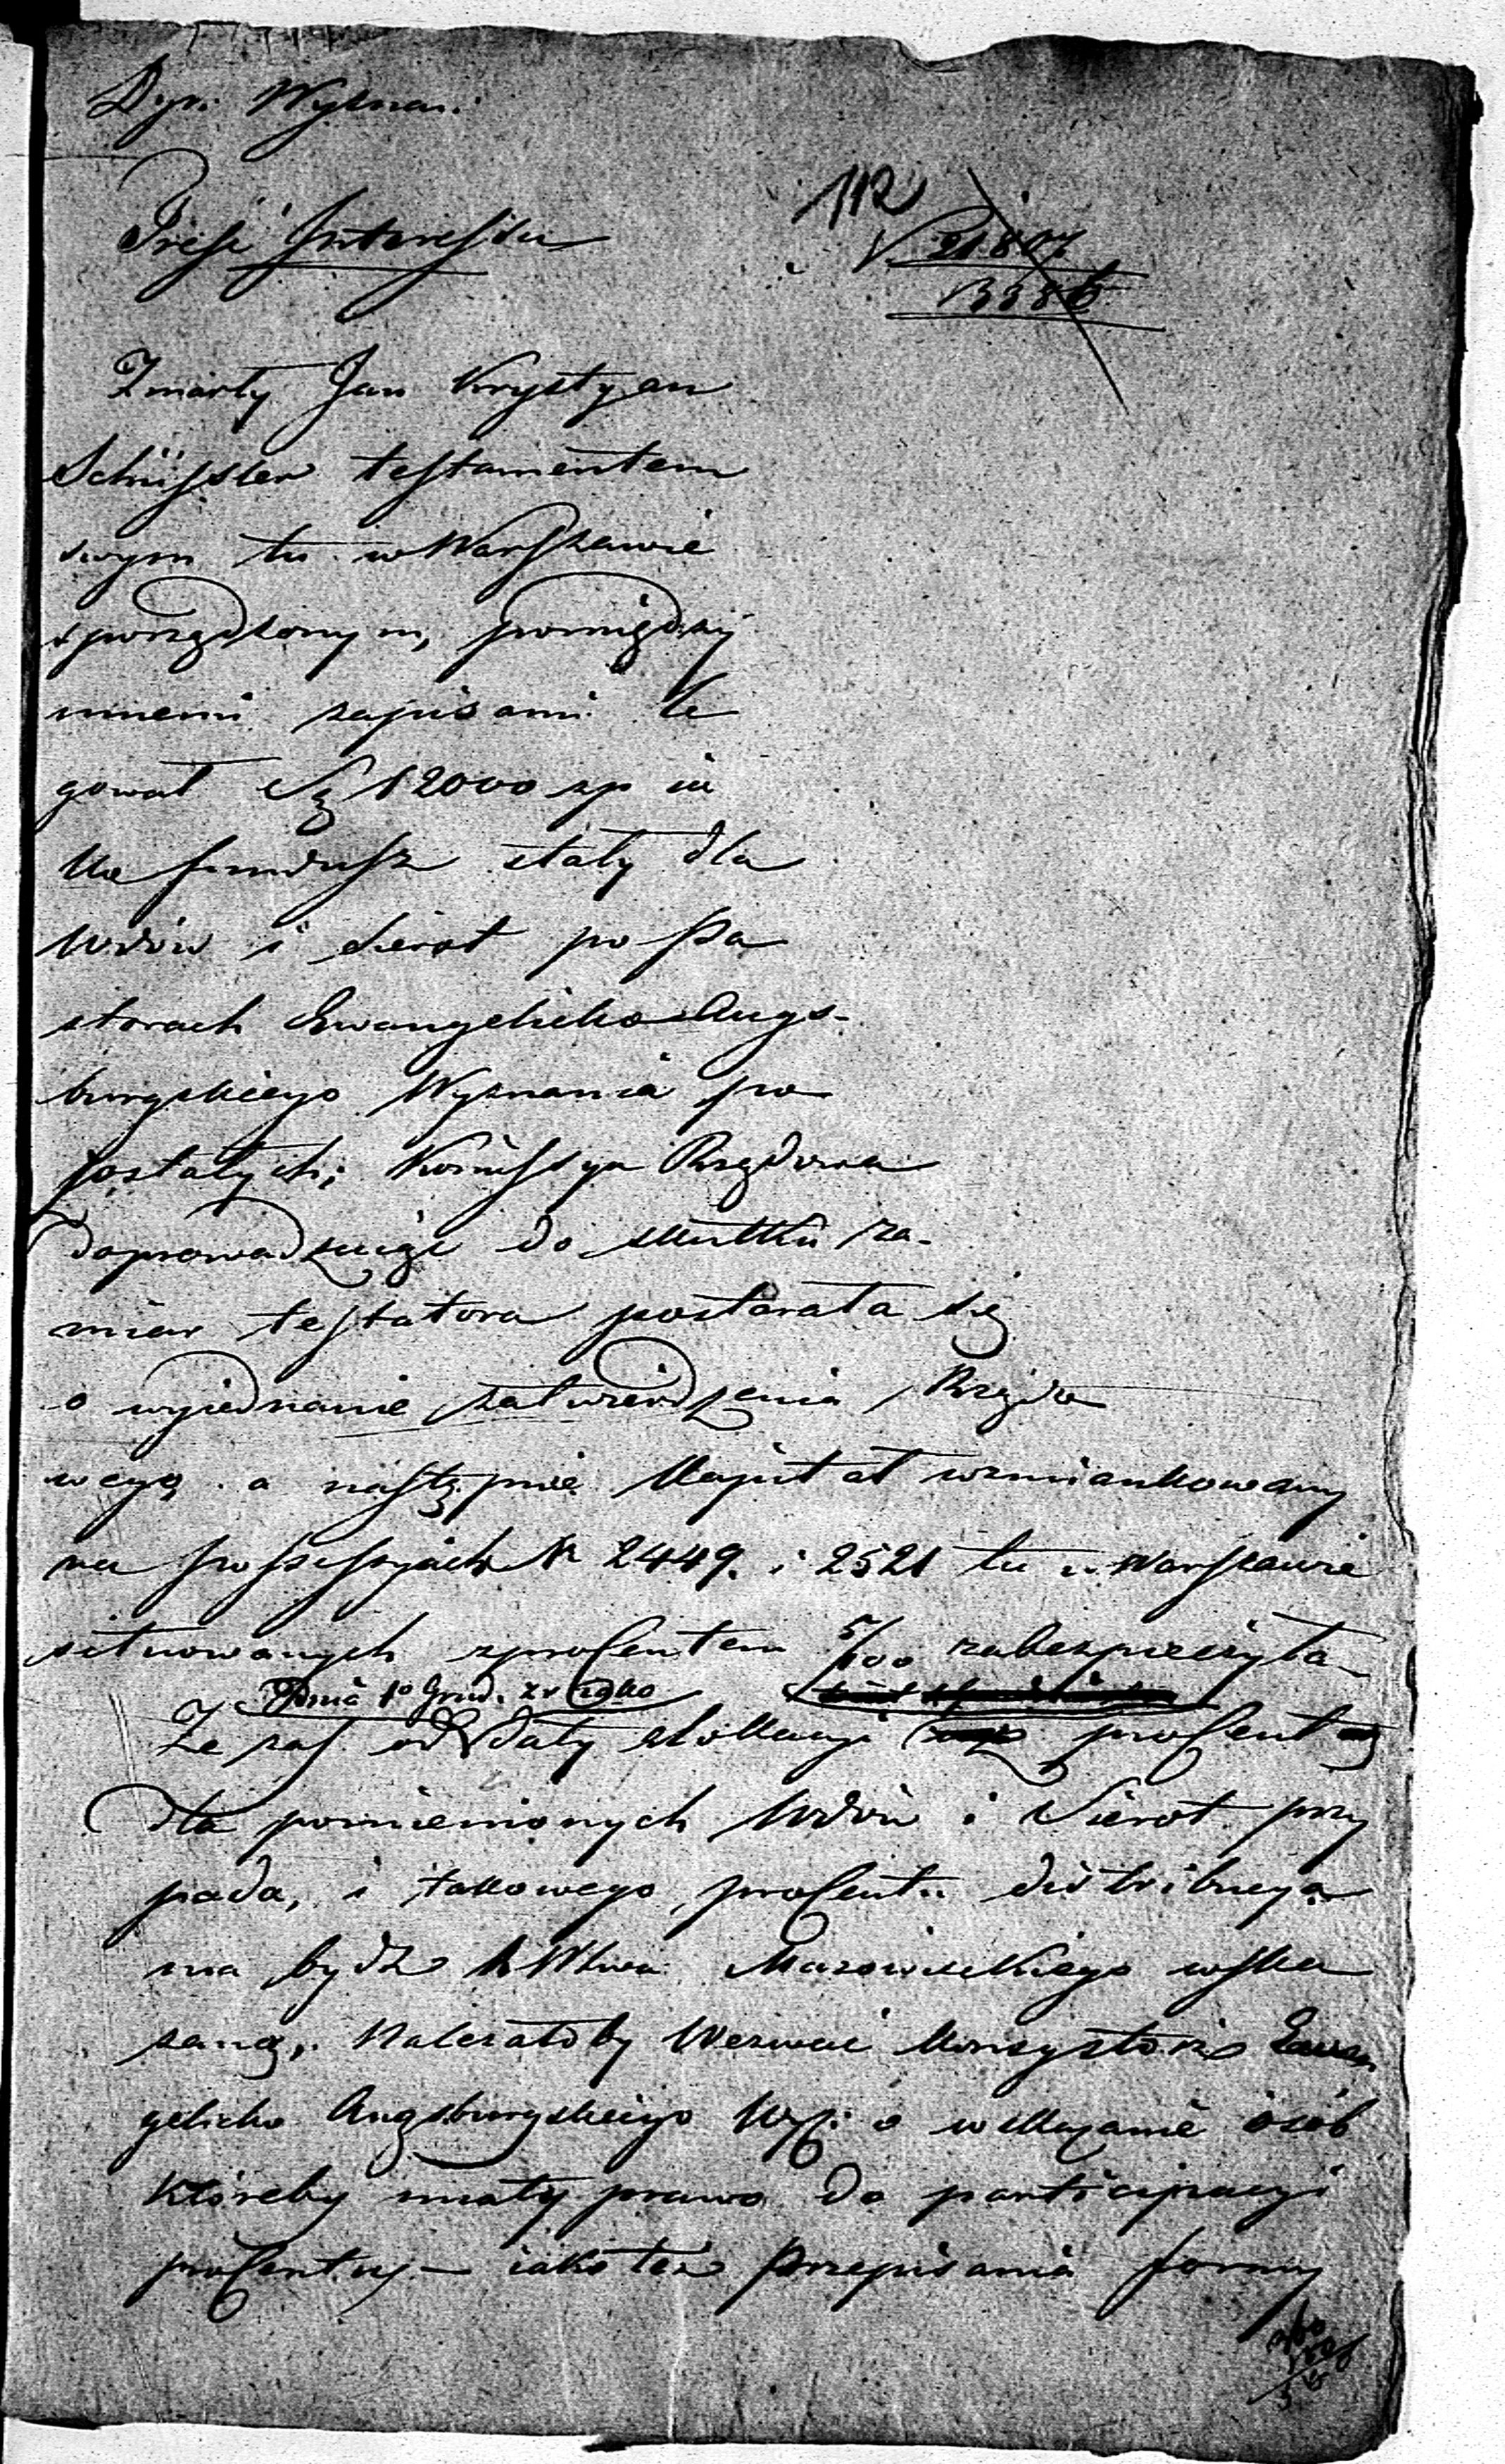 Dyr: Wyznan:
112
Treść Interessu
21807
3385
Zmarły Jan Krystyan
Schüssler testamentem
swym tu w Warszawie
sporządzonym, pomiędzy
innemi zapisami le
gował Sę 12000 zp ia
ko fundusz stały dla
Wdów i Sierot po Pa
storach Ewangelicko Augs-
burgskiego Wyznania po
zostałych; Kommissya Rządowa
doprowadzaiąc do skutku za-
miar testatora postarała się
o wyiednanie zatwierdzenia Rządo
wego a następnie Kapitał wzmiankowany
na possessyach N 2449. i 2521 tu w Warszawie
sytuowanych z procentem 5/100 zabezpieczyła
Dnia 10 Grud. zr 1820
Że zaś od daty elokacyi procent
dla pomienionych Wdów i Sierot przy
pada, i takowego procentu distribucya
ma bydź K Wwa Mazowieckiego wska
zaną, należałoby Wezwać Konsystorz Ewan
gelicko Augsburgskiego Wyz: o wskazanie osób
któreby miały prawo do participacyi
procentu, – iako też Przepisania formy
360